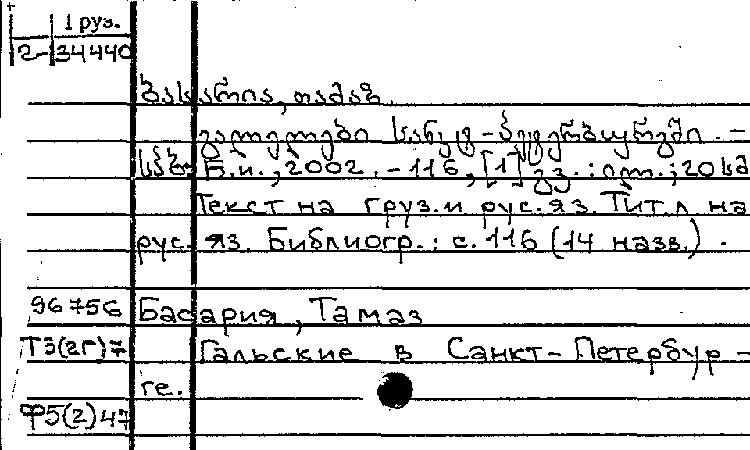 1 груз.
2-34440
ბასარია, თამაზ
გალელები სანკტ-პეტერბურგში. –
სპბ: Б.и., 2002. – 116, [1] გვ. : ილ. ; 20 სმ
Текст на груз. и рус. яз. Тит. л на
рус. яз. Библиогр.: с. 116 (14 назв.).
96756 Басария, Тамаз
Т3(2Г)7 Гальские в Санкт-Петербур-
ге.
Ф5(2)47